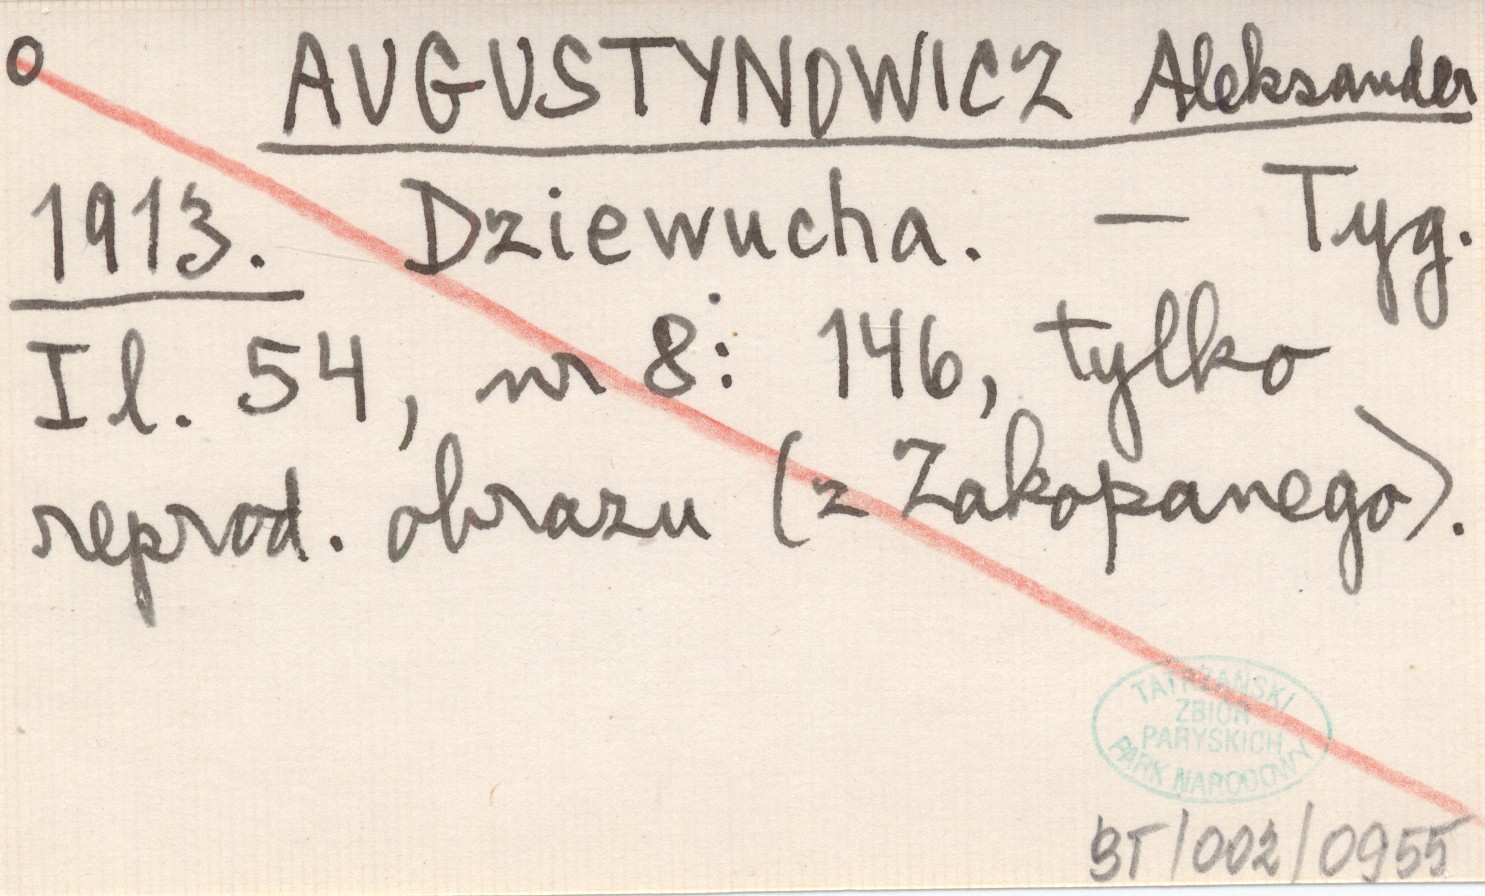 o AUGUSTYNOWICZ Aleksander
1913. Dziewucha. — Tyg.
Il. 54, nr 8: 146, tylko
reprod. obrazu (z Zakopanego).
TATRZAŃSKI
ZBIÓR
PARYSKICH
PARK NARODOWY
BT/002/0955